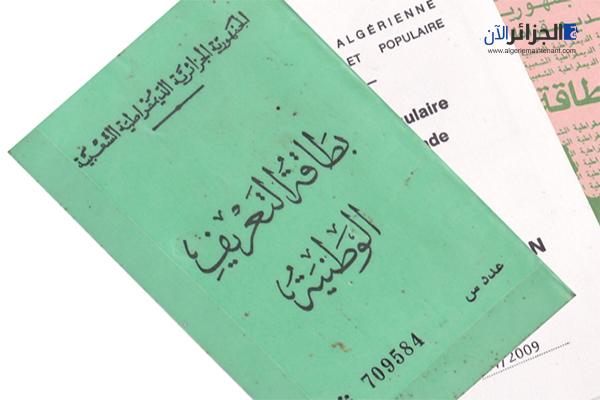 الجمهورية الجزائرية الديمقراطية الشعبية
بطاقة التعريف
الوطنية
عدد س
709584
ALGÉRIENNE
ET POPULAIRE
ulaire
nde
N
/2009
الجزائر الآن
www.algeriemaintenant.com